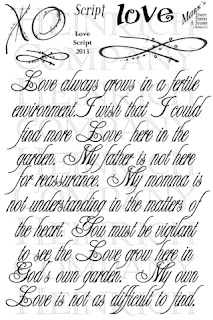 XO Script love
Love
Script
2013
Love always grows in a fertile
environment. I wish that I could
find more Love here in the
garden. My father is not here
for reassurance. My momma is
not understanding in the matters of
the heart. You must be vigilant
to see the Love grow here in
God's own garden. My own
Love is not as difficult to find.